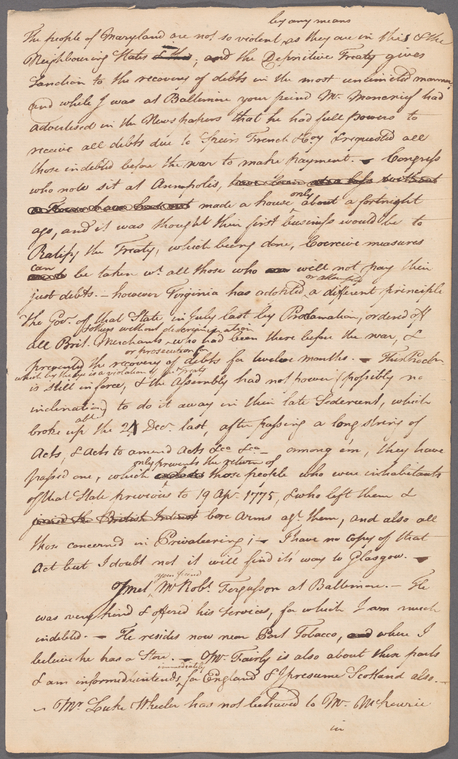 by any means
The people of Maryland are not so violent, as they are in this & the
Neighbouring States; and the Definitive Treaty gives
Sanction to the recovery of debts in the most unlimited manner
and while I was at Baltimore your friend Mr. Moncrief had
advertised in the Newspapers that he had full powers to
receive all debts due to Speirs French & Coy & requested all
those indebted before the war to make payment. — Congress
who now sit at Annapolis,
made a house only about a fortnight
ago, and it was thought their first business would be to
Ratify the Treaty, which being done, Coercive measures
can be taken wt. all those who will not pay their
just debts. — however Virginia has adopted a different principle
The Gov. of that State, in July last by Proclamation, ordered off
all Brit. Merchants, who had been there before the war, &
others without
or prosecution
prevents the recovery of debts for twelve months. — This Procln.
which by the by is a violation of the Treaty
is still in force, & the Assembly had not power (possibly no
inclination) to do it away in their late Sederunt, which
broke up the Decr. last, after passing a long string of
Acts, & Acts to amend Acts &ca &ca — among em, they have
only prevents the return of
passed one, which those people who were inhabitants
of that State previous to 19 Apr. 1775, & who left them &
bore Arms agt. them, and also all
those concerned in Privateering; — I have no copy of that
Act but I doubt not it will find its way to Glasgow. —
your friend
I met Mr Robt. Fergusson at Baltimore. — He
was very kind & offered his services, for which I am much
indebted. — He resides now near Port Tobacco, where I
believe he has a Store. — Mr. is also about these parts
immediately
& am informed intends for England & I presume Scotland also. —
Mr Luke Wheeler has not behaved to Mr.
in